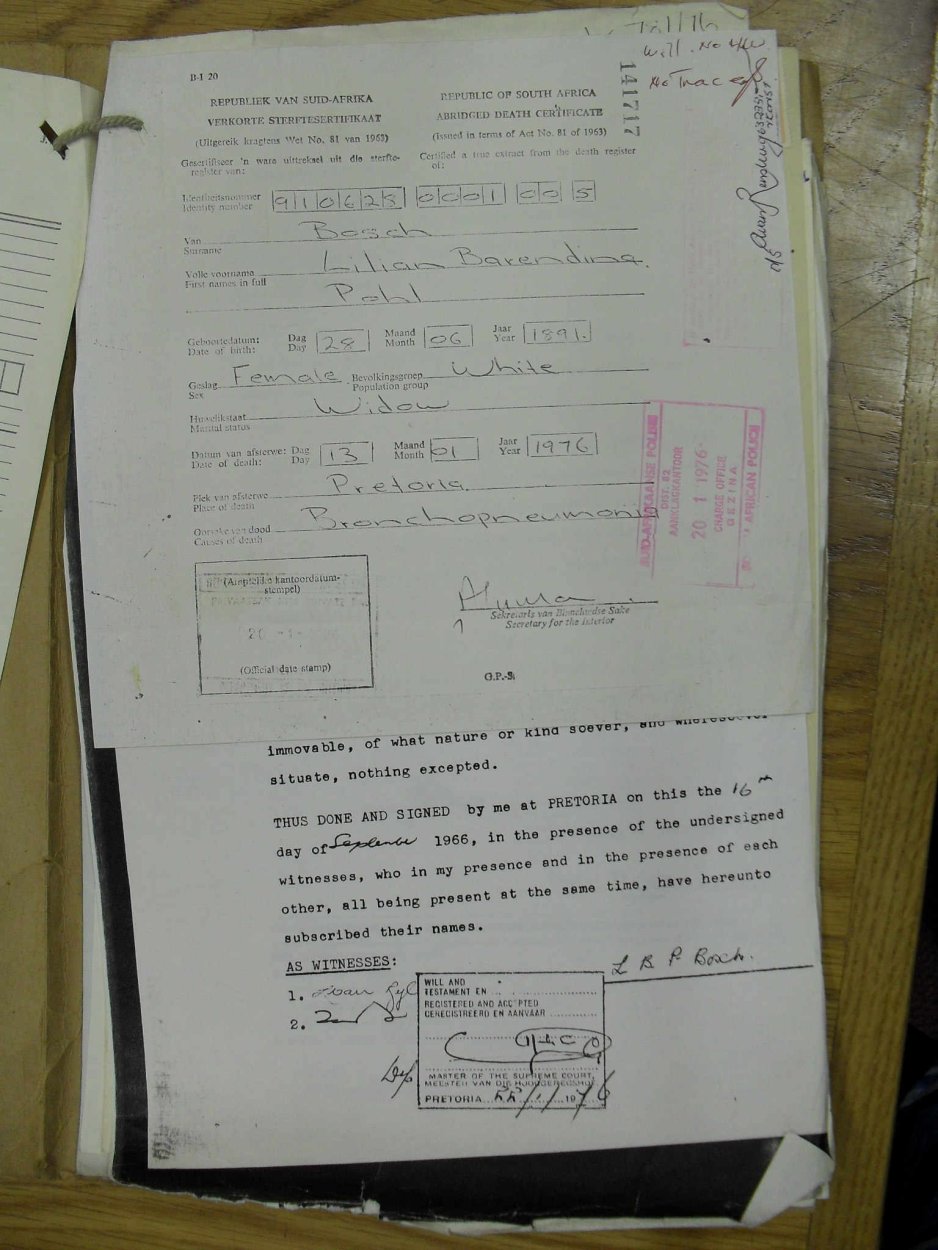 Will. No
No Trace of
141717
B-I 20
REPUBLIEK VAN SUID-AFRIKA
VERKORTE STERFTESERTIFIKAAT
(Uitgereik kragtens Wet No. 81 van 1963)
Gesertifiseer 'n ware uittreksel uit die sterfte-
register van:
REPUBLIC OF SOUTH AFRICA
ABRIDGED DEATH CERTIFICATE
(Issued in terms of Act No. 81 of 1963)
Certified a true extract from the death register
of:
Identiteitsnommer
Identity number
910628 0001 00 5
Van
Surname
Bosch
Volle voorname
First names in full
Lilian Barendina
Pohl
Geboortedatum:
Date of birth:
Dag
Day
28
Maand
Month
06
Jaar
Year
1891.
Geslag
Sex
Female
Bevolkingsgroep
Population group
White
Huwelikstaat
Marital status
Widow
Datum van afsterwe:
Date of death:
Dag
Day
13
Maand
Month
01
Jaar
Year
1976
Plek van afsterwe
Place of death
Pretoria
Oorsake van dood
Causes of death
Bronchopneumonia
SUID-AFRIKAANSE POLISIE
DIST. 82
AANKLAGKANTOOR
20 1 1976
CHARGE OFFICE
GEZINA
AFRICAN POLICE
(Amptelike kantoordatum-
stempel)
20 -1-
(Official date stamp)
Sekretaris van Binnelandse Sake
Secretary for the Interior
G.P.-S.
immovable, of what nature or kind soever, and wheresoever
situate, nothing excepted.
THUS DONE AND SIGNED by me at PRETORIA on this the 16th
day of September 1966, in the presence of the undersigned
witnesses, who in my presence and in the presence of each
other, all being present at the same time, have hereunto
subscribed their names.
AS WITNESSES:
L B P Bosch.
1.
2.
WILL AND
TESTAMENT EN
REGISTERED AND ACCEPTED
GEREGISTREERD EN AANVAAR
MASTER OF THE SUPREME COURT,
MEESTER VAN DIE HOOGGEREGSHOF
PRETORIA 22/1/1976